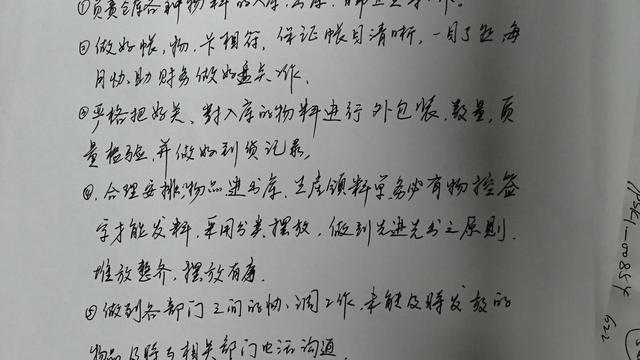 ①负责仓库各种物料的入库、出库、
②做好帐,物,卡相符,保证帐目清晰,一目了然,每
月协助财务做好盘点工作.
③严格把好关、对入库的物料进行外包装、数量,质
量检验,并做好到货记录。
④.合理安排物品进出库、生产领料单务必有物控签
字才能发料.采用分类摆放,做到先进先出之原则.
堆放整齐,摆放有序.
⑤做到各部门之间的协调工作.未能及時发放的
物品及時与相关部门电话沟通.